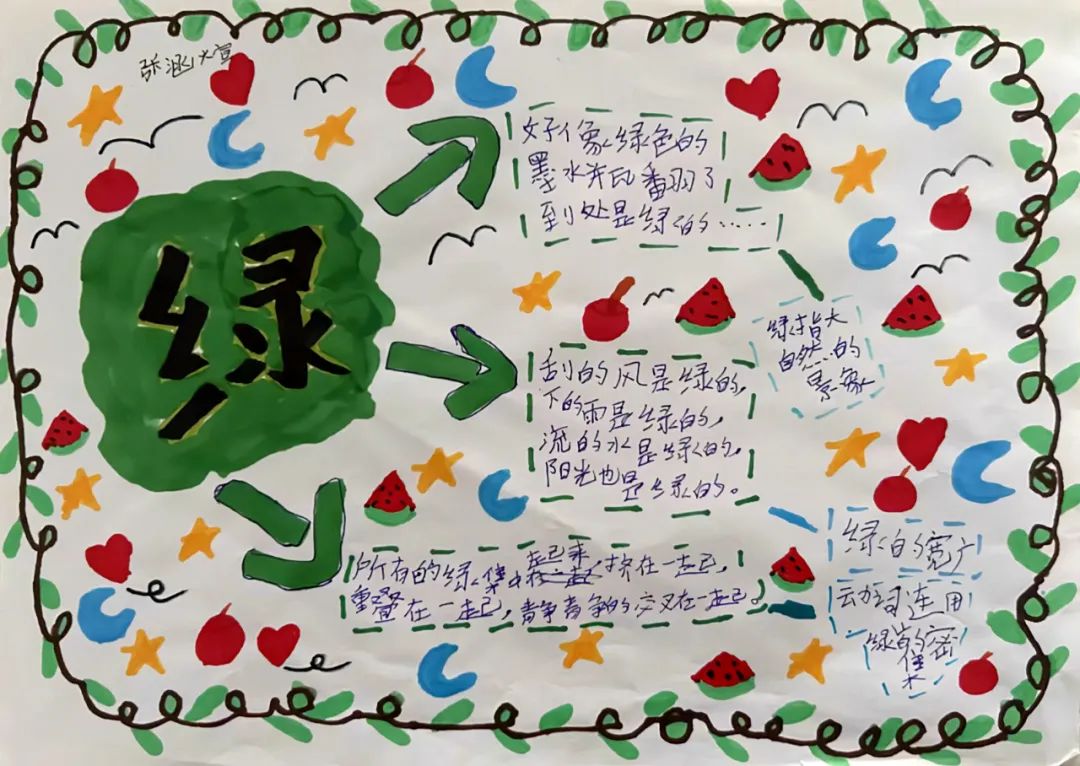 张涵
绿
好像绿色的
墨水瓶翻了
到处是绿的……
绿指大
自然的
景象
刮的风是绿的,
下的雨是绿的,
流的水是绿的。
阳光也是绿的。
绿的宽广
所有的绿集中起来,挤在一起,
重叠在一起,静静的交叉在一起。
动词连用
绿的密
集